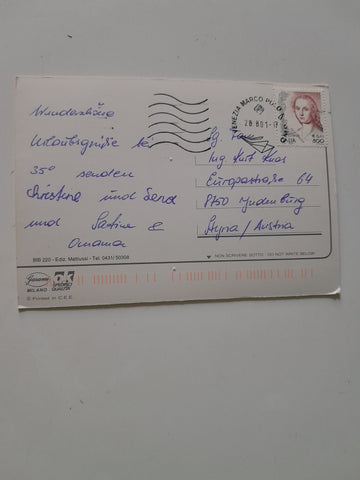 Wunderschöne
Urlaubsgrüße bei
35° senden
Christine und Gerd
und
Omama
VENEZIA MARCO POLO
28.8.01-1
800
Fam.
Ing. Kurt
Europastraße 64
8750 Judenburg
Styria/Austria
BIB 220 - Ediz. Mattiussi - Tel. 0431/50308
▼ NON SCRIVERE SOTTO - DO NOT WRITE BELOW
MILANO
OK
QUALITÀ
© Printed in C.E.E.